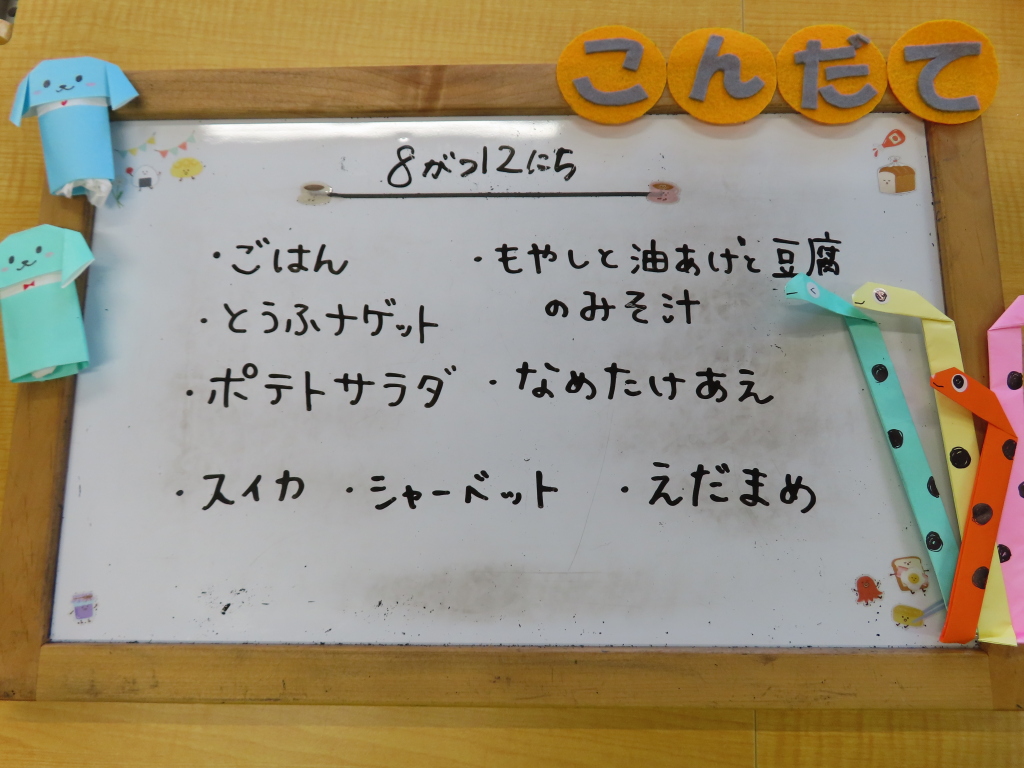 こんだて
8がつ12にち
・ごはん
・とうふナゲット
・ポテトサラダ
・もやしと油あげと豆腐
のみそ汁
・なめたけあえ
・スイカ ・シャーベット ・えだまめ